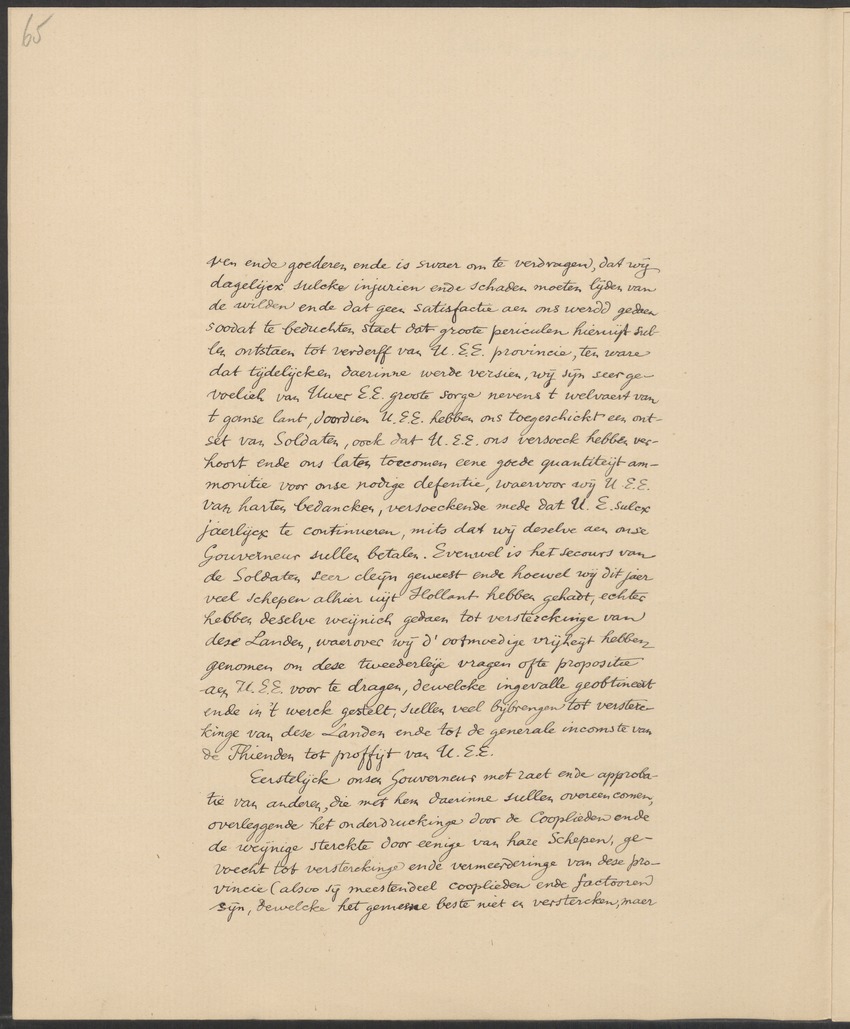 65
ven ende goederen ende is swaer om te verdragen, dat wij
dagelijcx sulcke injurien ende schaden moeten lijden van
de wilden ende dat geen satisfactie aen ons werdd gedaen
soodat te beduchten staet dat groote periculen hieruijt sul-
len ontstaen tot verderff van U.E.E. provincie, ten ware
dat tijdelijcken daerinne werde versien, wij sijn seer ge-
voelich van Uwer E.E. groote sorge nevens t welvaert van
t ganse lant, doordien U.E.E. hebben ons toegeschickt een ont-
set van Soldaten, oock dat U.E.E. ons versoeck hebben ver-
hoort ende ons laten toecomen eene goede quantiteijt am-
monitie voor onse nodige defentie, waervoor wij U.E.E.
van harten bedancken, versoeckende mede dat U.E. sulcx
jaerlijcx te continueren, mits dat wij deselve aen onse
Gouverneur sullen betalen. Evenwel is het secours van
de Soldaten seer cleijn geweest ende hoewel wij dit jaer
veel schepen alhier uijt Hollant hebben gehadt, echter
hebben deselve weijnich gedaen tot versterckinge van
dese Landen, waerover wij d'ootmoedige vrijheijt hebben
genomen om dese tweederleije vragen ofte propositie
aen U.E.E. voor te dragen, dewelcke ingevalle geobtineert
ende in 't werck gestelt, sullen veel bijbrengen tot verster-
kinge van dese Landen ende tot de generale incomste van
de Thienden tot proffijt van U.E.E.
Eerstelijck onsen Gouverneur met raet ende approba-
tie van anderen, die met hem daerinne sullen overeencomen,
overleggende het onderdruckinge door de Cooplieden ende
de weijnige sterckte door eenige van hare Schepen, ge-
voecht tot versterckinge ende vermeerderinge van dese pro-
vincie (alsoo sij meestendeel cooplieden ende factooren
sijn, dewelcke het gemeene beste niet en verstercken, maer